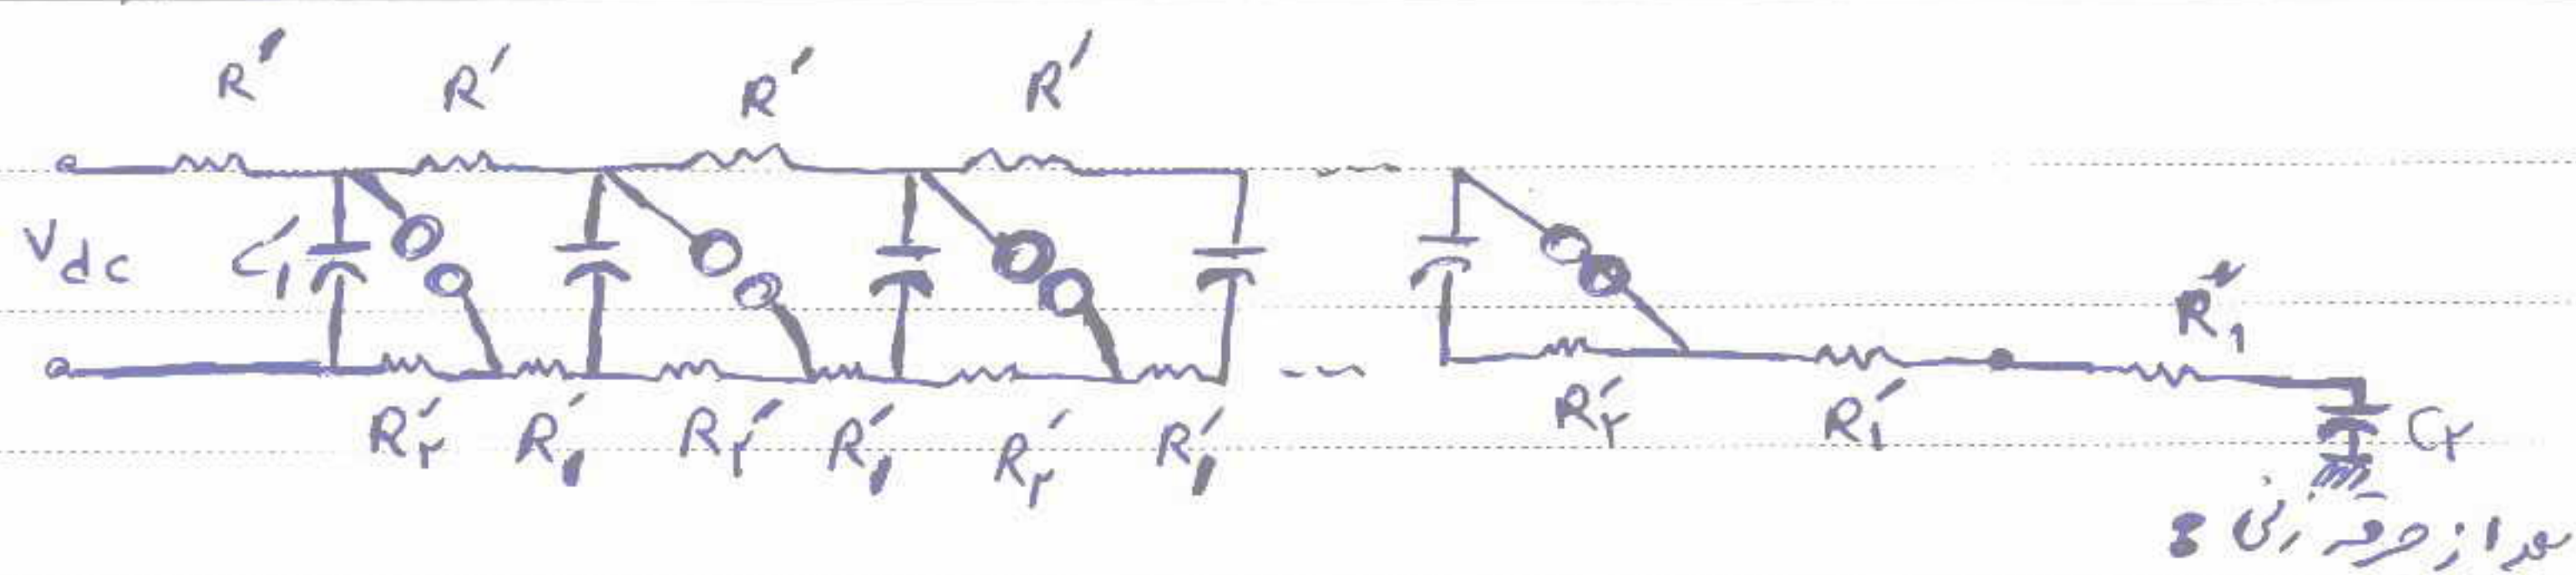 R′ R′ R′ R′
V dc C′۱ R″۱
R′۲ R′۱ R′۲ R′۱ R′۲ R′۱ R′۲ R′۱ C۲
بعد از جرقه زنی :